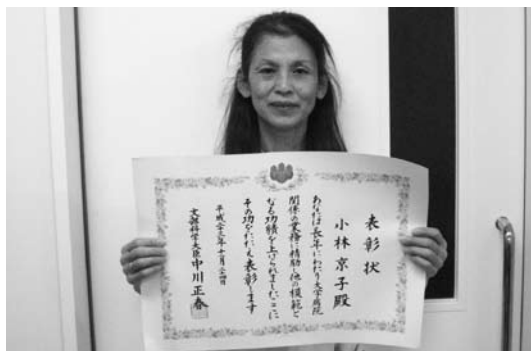 表彰状
小林京子殿
あなたは長年にわたり大学病院
関係の業務に精励し他の模範と
なる功績を上げられましたここに
その功をたたえ表彰します
平成二十三年十一月二十四日
文部科学大臣 中川正春